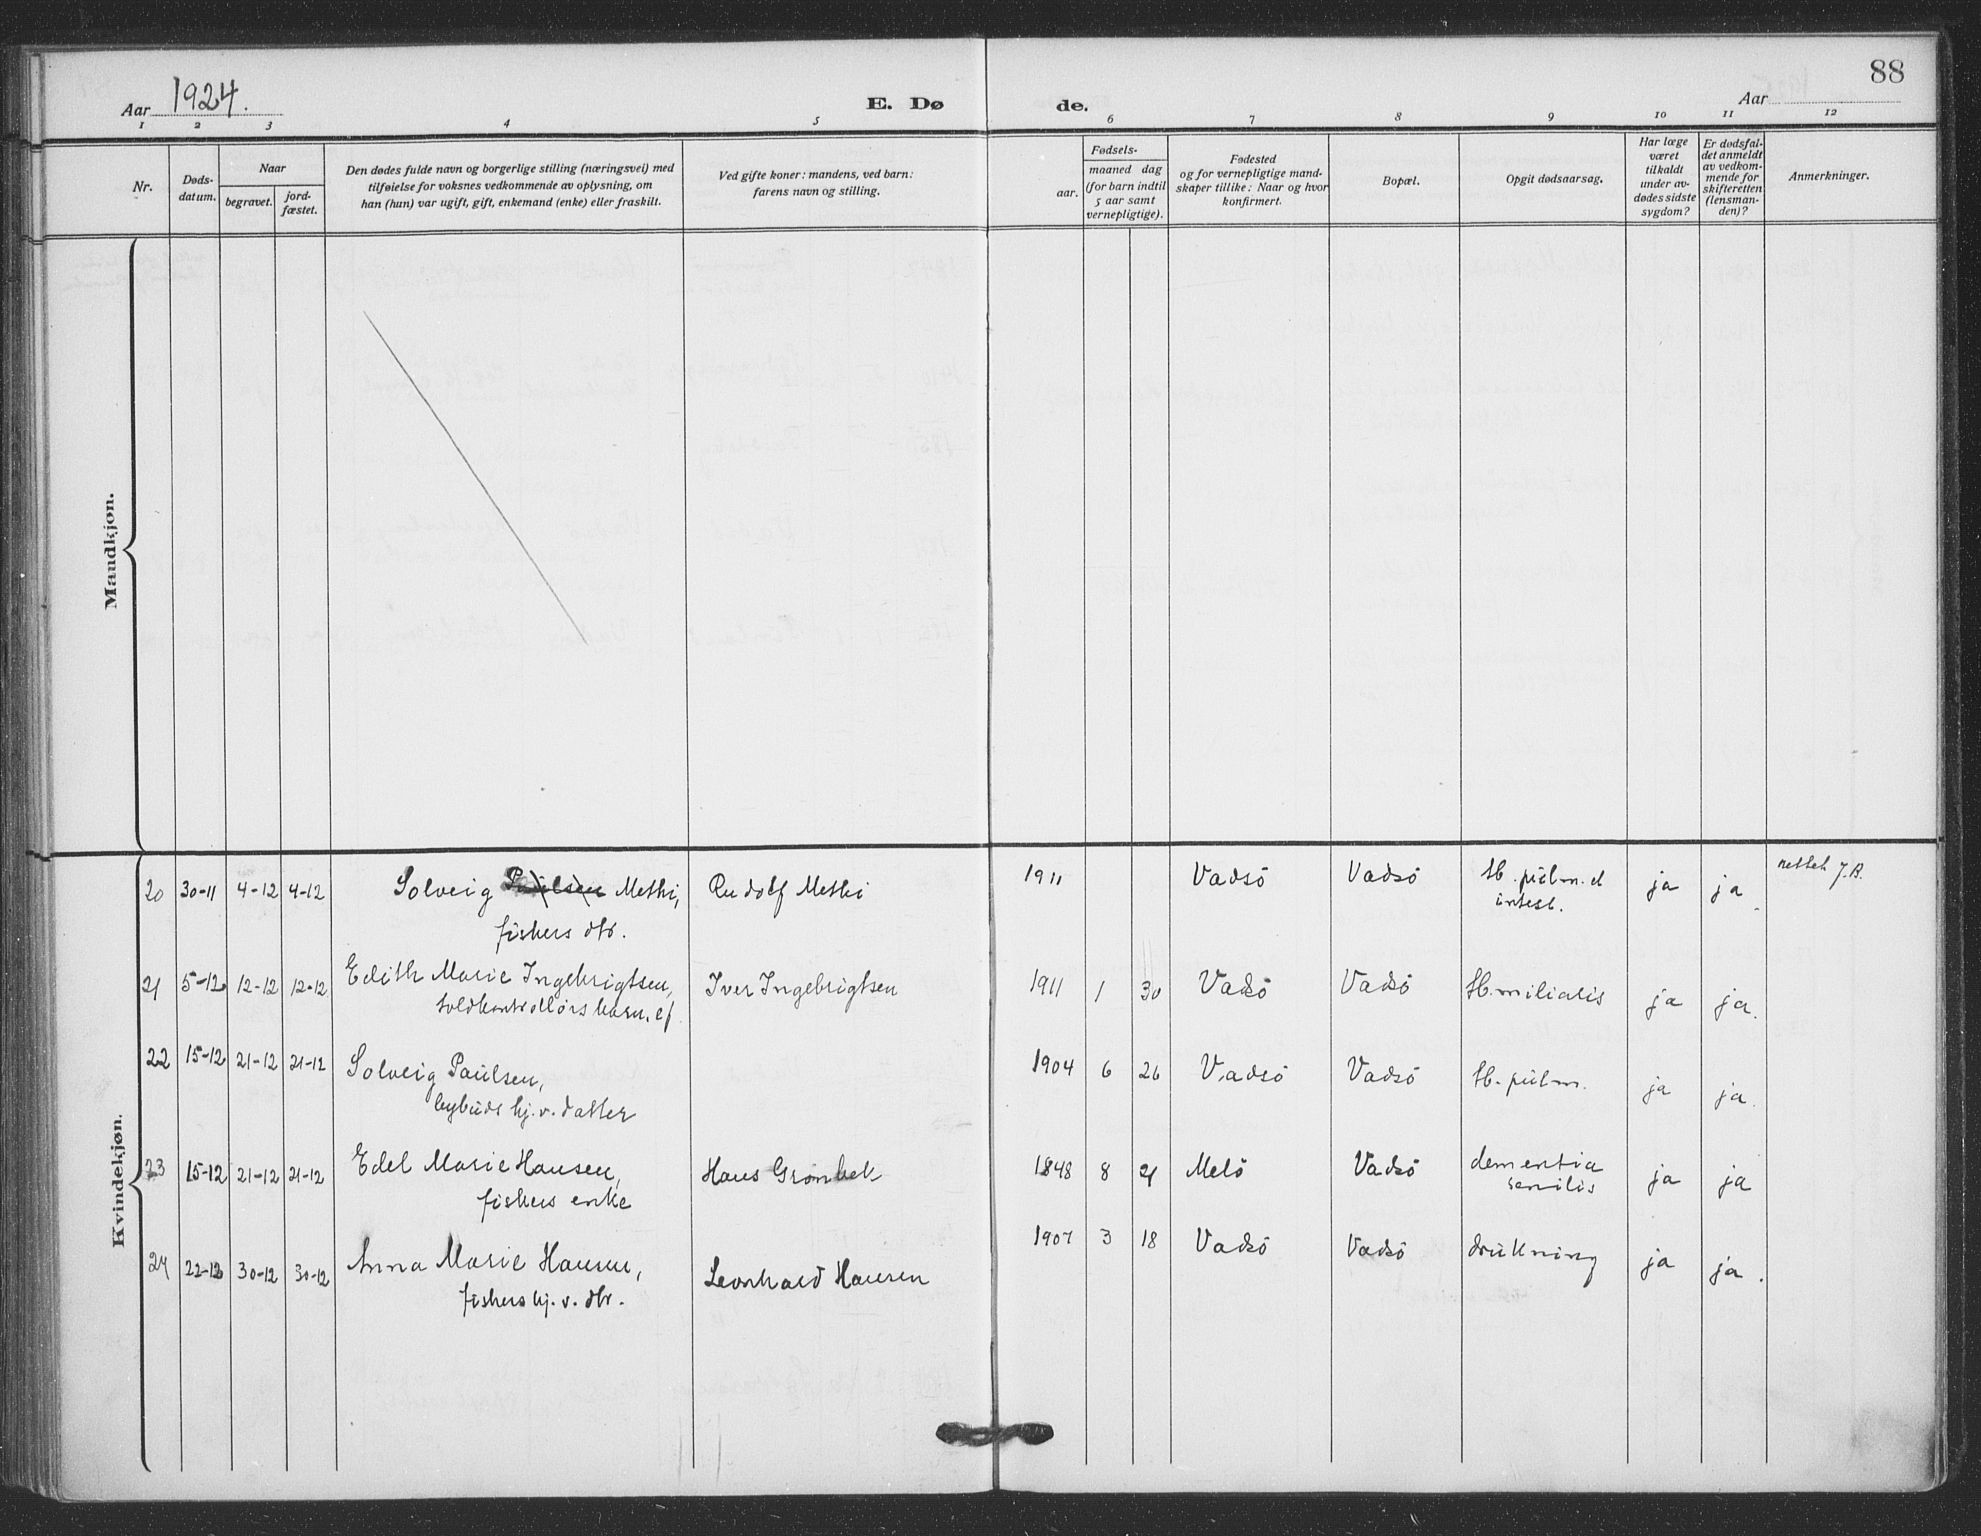 88
Aar 1924.
E. Dø
de.
Aar
1 2 3 4 5 6 7 8 9 10 11 12
Nr.
Døds-
datum.
Naar
begravet.
jord-
fæstet.
Den dødes fulde navn og borgerlige stilling (næringsvei) med
tilføielse for voksnes vedkommende av oplysning, om
han (hun) var ugift, gift, enkemand (enke) eller fraskilt.
Ved gifte koner: mandens, ved barn:
farens navn og stilling.
Fødsels-
aar.
maaned dag
(for barn indtil
5 aar samt
vernepligtige).
Fødested
og for vernepligtige mand-
skaper tillike: Naar og hvor
konfirmert.
Bopæl.
Opgit dødsaarsag.
Har læge
været
tilkaldt
under av-
dødes sidste
sygdom?
Er dødsfal-
det anmeldt
av vedkom-
mende for
skifteretten
(lensman-
den)?
Anmerkninger.
Mandkjøn.
Kvindekjøn.
20 30-11 4-12 4-12 Solveig Paulsen Methi, Rudolf Methi 1911 Vadsö Vadsö tb. pulm. et ja ja rettet J.B.
fiskers dtr. intest.
21 5-12 12-12 12-12 Edith Marie Ingebrigtsen, Iver Ingebrigtsen 1911 1 30 Vadsö Vadsö tb. miliaris ja ja.
toldkontrollörs barn, ef.
22 15-12 21-12 21-12 Solveig Paulsen, 1904 6 26 Vadsö Vadsö tb. pulm. ja ja.
bybuds hj. v. datter
23 15-12 21-12 21-12 Edel Marie Hansen, Hans Grønbek 1848 8 21 Melö Vadsö dementia ja ja
fiskers enke senilis
24 22-12 30-12 30-12 Anna Marie Hansen, Leonhard Hansen 1907 3 18 Vadsö Vadsö drukning ja ja.
fiskers hj. v. dtr.